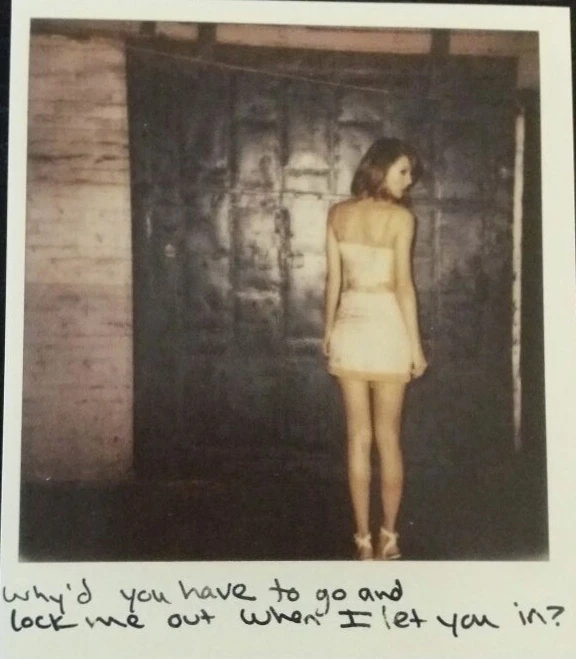 why'd you have to go and
lock me out when I let you in?